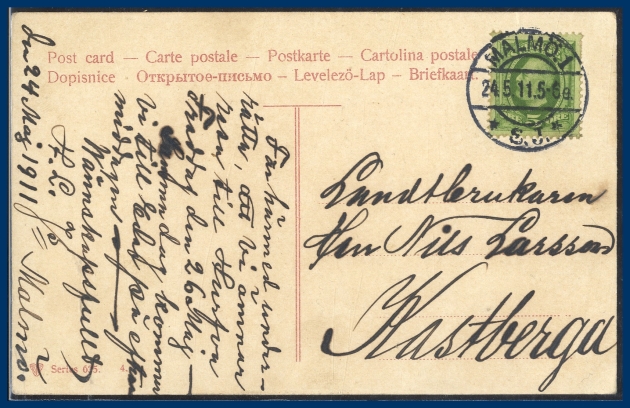 Post card — Carte postale — Postkarte — Cartolina postale
Dopisnice — Открытое-письмо — Levelező-Lap — Briefkaart
MALMÖ.1
24.5.11.5-6e.
* S.J. *
Den 24 Maj 1911 Malmö.
Får härmed under-
rätta, att vi ämnar
till Hurfva
den 26 Maj
dag komma
vi till Edet på efter
middagen
Vänskapsfullt
Landtbrukaren
Herr Nils Larsson
Kastberga
Series 675. 4.